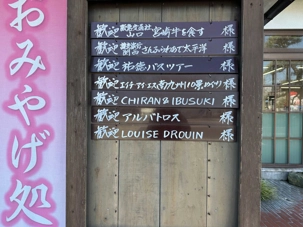 おみやげ処
歓迎 山口 宮崎牛を食す 様
歓迎 さんふらわあで太平洋 様
歓迎 バスツアー 様
歓迎 南九州10景めぐり 様
歓迎 CHIRAN&IBUSUKI 様
歓迎 アルバトロス 様
歓迎 LOUISE DROUIN 様